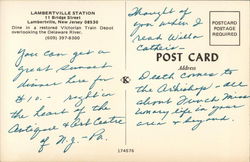 LAMBERTVILLE STATION
11 Bridge Street
Lambertville, New Jersey 08530
Dine in a restored Victorian Train Depot
overlooking the Delaware River.
(609) 397-8300
You can get a
great sunset
dinner here for
$10. - right in
the heart of the
Antique & Art Centre
of N.J. - Pa.
Thought of
you when I
read Willa
Cather's
Death comes to
the Archbishop - all
about French Miss
ionary life in your
area & beyond.
POSTCARD
POSTAGE
REQUIRED
POST CARD
Address
174576